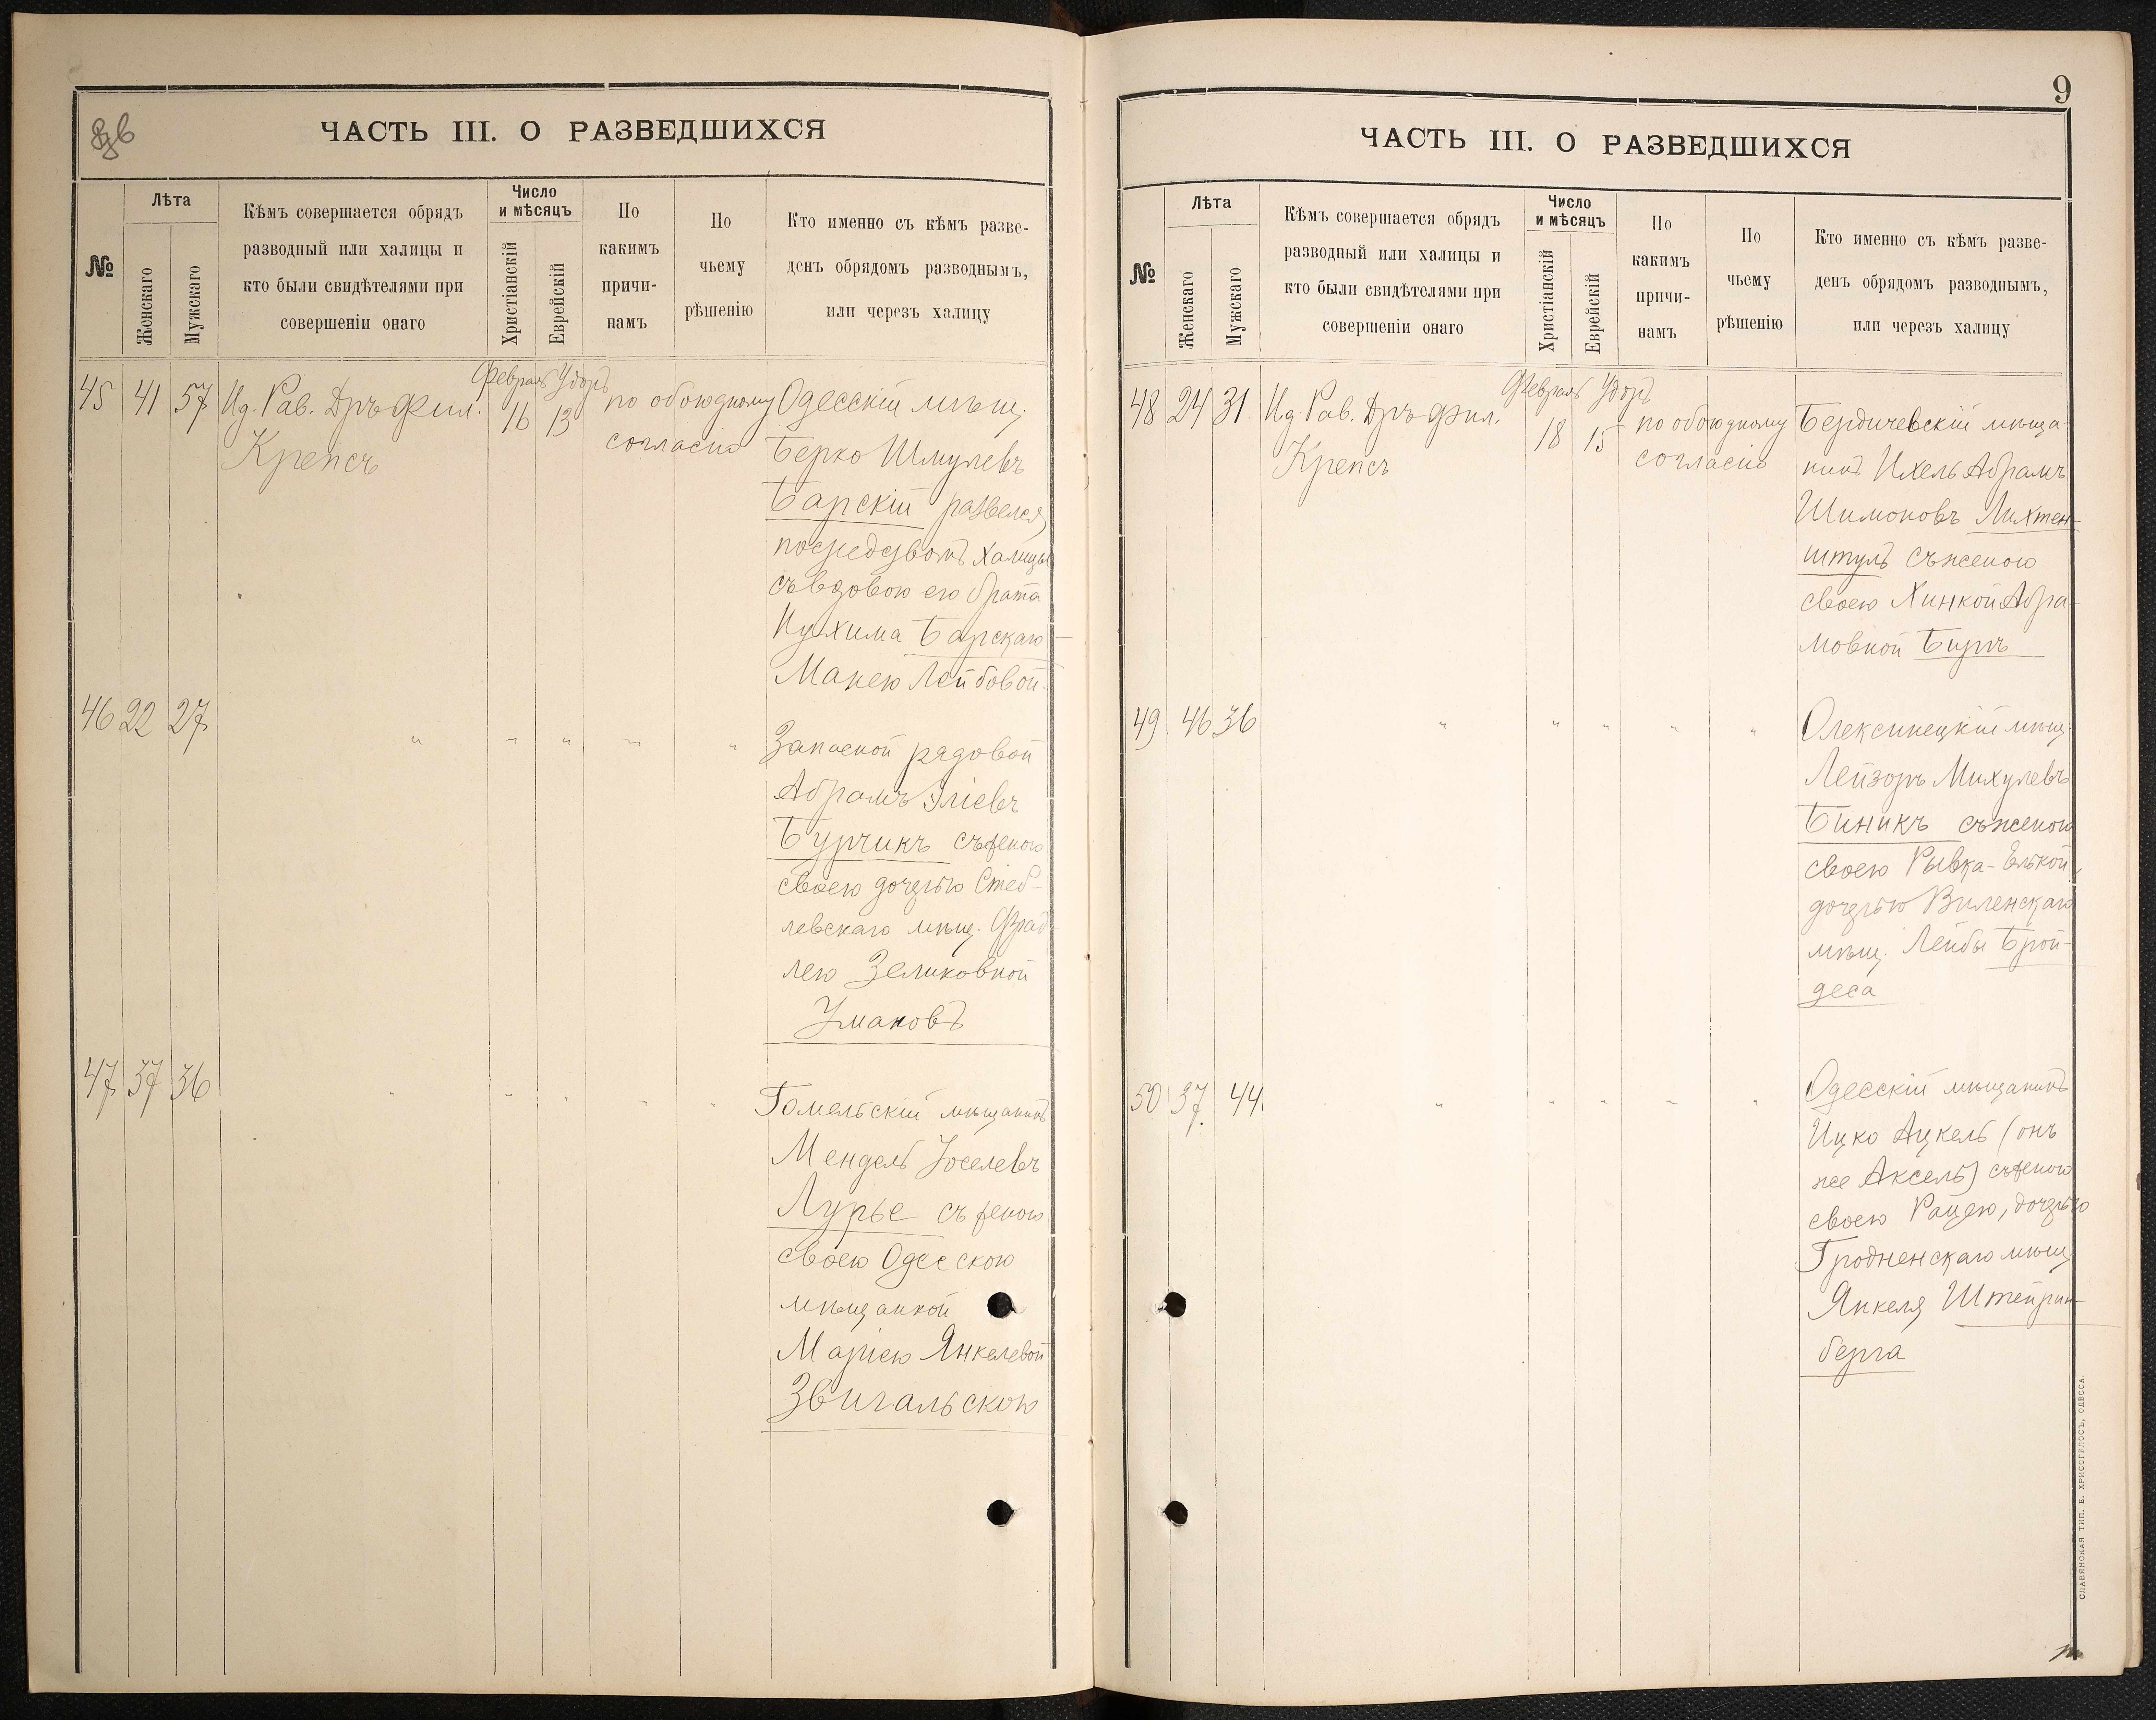 ЧАСТЬ III. О РАЗВЕДШИХСЯ
№
Лѣта
Женскаго
Мужскаго
Кѣмъ совершается обрядъ
разводный или халицы и
кто были свидѣтелями при
совершеніи онаго
Число
и мѣсяцъ
Христіанскій
Еврейскій
По
какимъ
причи-
намъ
По
чьему
рѣшенію
Кто именно съ кѣмъ разве-
денъ обрядомъ разводнымъ,
или черезъ халицу
45 41 57 Ид. Рав. Дръ Фил.
Крепсъ
Февраль
16 13
по обоюдному
согласію
Одесскій мѣщ.
Берко Шмулевъ
Барскій развелся
посредствомъ халицы
съ вдовою его брата
Нухима Барскаго
Манею Лейбовой
46 22 27 " " " " "
Запасной рядовой
Абрамъ Эліевъ
Бурчикъ съ женою
своею дочерью Стеб-
левскаго мѣщ. Фрад
лею Зеликовной
Умановъ
47 37 36 " " " " "
Гомельскій мѣщанинъ
Мендель Іоселевъ
Лурье съ женою
своею Одесскою
мѣщанкой
Маріею Янкелевой
Звигальскою
9
ЧАСТЬ III. О РАЗВЕДШИХСЯ
№
Лѣта
Женскаго
Мужскаго
Кѣмъ совершается обрядъ
разводный или халицы и
кто были свидѣтелями при
совершеніи онаго
Число
и мѣсяцъ
Христіанскій
Еврейскій
По
какимъ
причи-
намъ
По
чьему
рѣшенію
Кто именно съ кѣмъ разве-
денъ обрядомъ разводнымъ,
или черезъ халицу
48 24 31 Ид Рав. Дръ Фил.
Крепсъ
Февраль
18 15
по обоюдному
согласію
Бердичевскій мѣща-
нинъ Ихель Абрамъ
Шимоновъ Лихтен-
штулъ съ женою
своею Хинкой Абра-
мовной
49 46 36 " " " " "
Олексинецкій мѣщ.
Лейзоръ Михулевъ
Биникъ съ женою
своею Рывка-Элькой,
дочерью Виленскаго
мѣщ. Лейбы Брой-
деса
50 37 44 " " " " "
Одесскій мѣщанинъ
Ицко Ацкель (онъ
же Аксель) съ женою
своею дочерью
Гродненскаго мѣщ.
Янкеля Штейрин-
берга
СЛАВЯНСКАЯ ТИП. Е. ХРИСОГЕЛОСЪ, ОДЕССА.